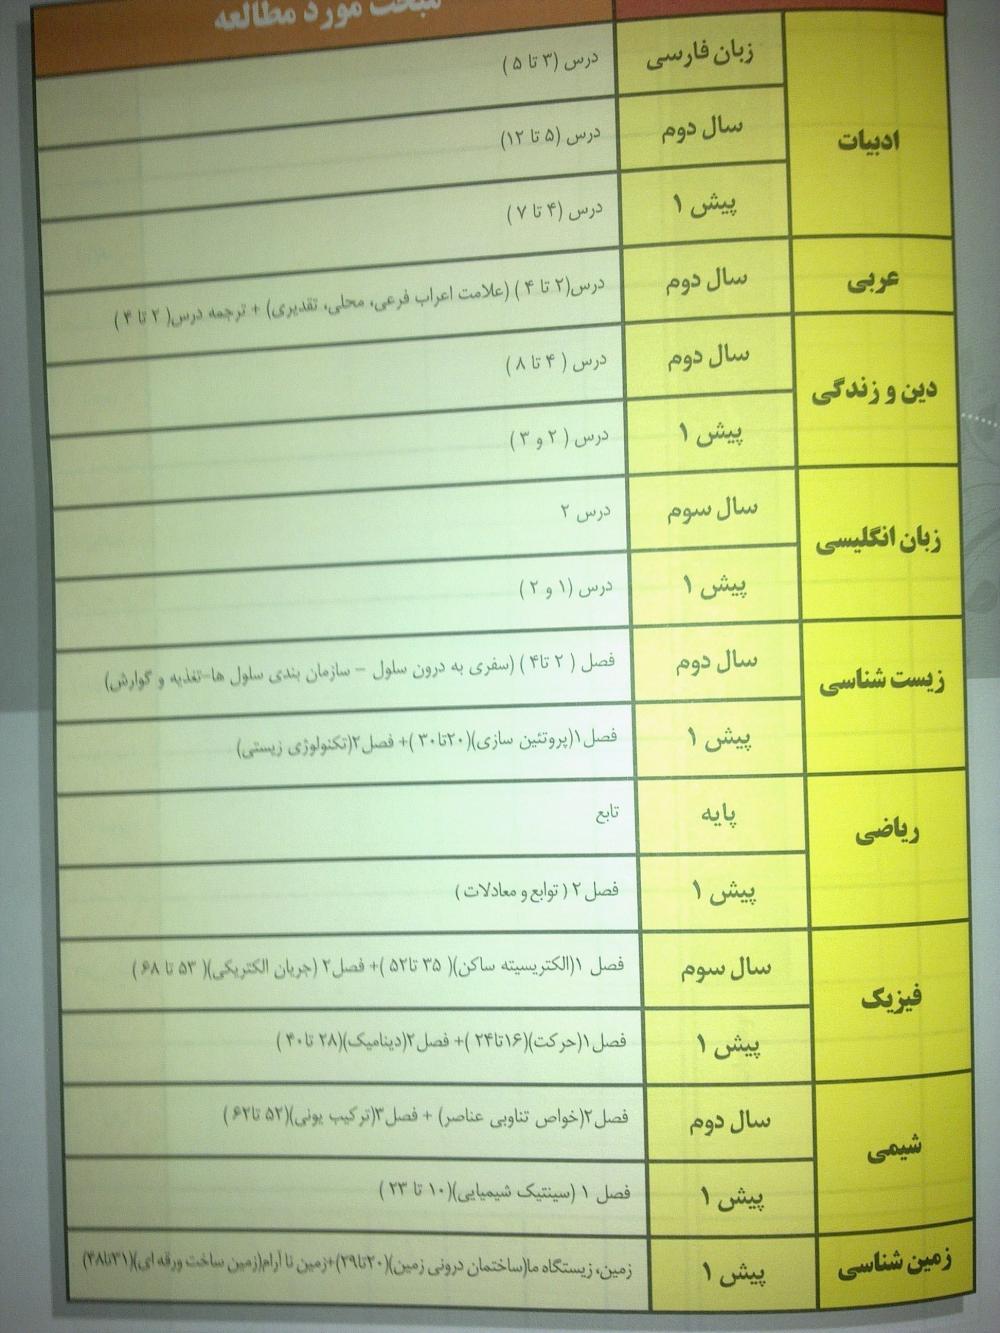 مبحث مورد مطالعه
ادبیات
زبان فارسی
درس (۳ تا ۵ )
سال دوم
درس (۵ تا ۱۲)
پیش ۱
درس (۴ تا ۷ )
عربی
سال دوم
درس(۲ تا ۴ ) (علامت اعراب فرعی، محلی، تقدیری) + ترجمه درس( ۲ تا ۴ )
دین و زندگی
سال دوم
درس ( ۴ تا ۸ )
پیش ۱
درس ( ۲ و ۳ )
زبان انگلیسی
سال سوم
درس ۲
پیش ۱
درس (۱ و ۲ )
زیست شناسی
سال دوم
فصل ( ۲ تا۴ ) (سفری به درون سلول – سازمان بندی سلول ها-تغذیه و گوارش)
پیش ۱
فصل۱(پروتئین سازی)(۲۰تا۳۰ )+ فصل۲(تکنولوژی زیستی)
ریاضی
پایه
تابع
پیش ۱
فصل ۲ ( توابع و معادلات )
فیزیک
سال سوم
فصل ۱(الکتریسیته ساکن)( ۳۵ تا۵۲ )+ فصل۲ (جریان الکتریکی)( ۵۳ تا ۶۸ )
پیش ۱
فصل۱(حرکت)(۱۶تا۲۴ )+ فصل۲(دینامیک)(۲۸ تا۴۰ )
شیمی
سال دوم
فصل۲(خواص تناوبی عناصر) + فصل۳(ترکیب یونی)(۵۲ تا۶۲ )
پیش ۱
فصل ۱ (سینتیک شیمیایی)(۱۰ تا ۲۳ )
زمین شناسی
پیش ۱
زمین، زیستگاه ما(ساختمان درونی زمین)(۲۰تا۲۹)+زمین نا آرام(زمین ساخت ورقه ای)(۳۱تا۴۸)